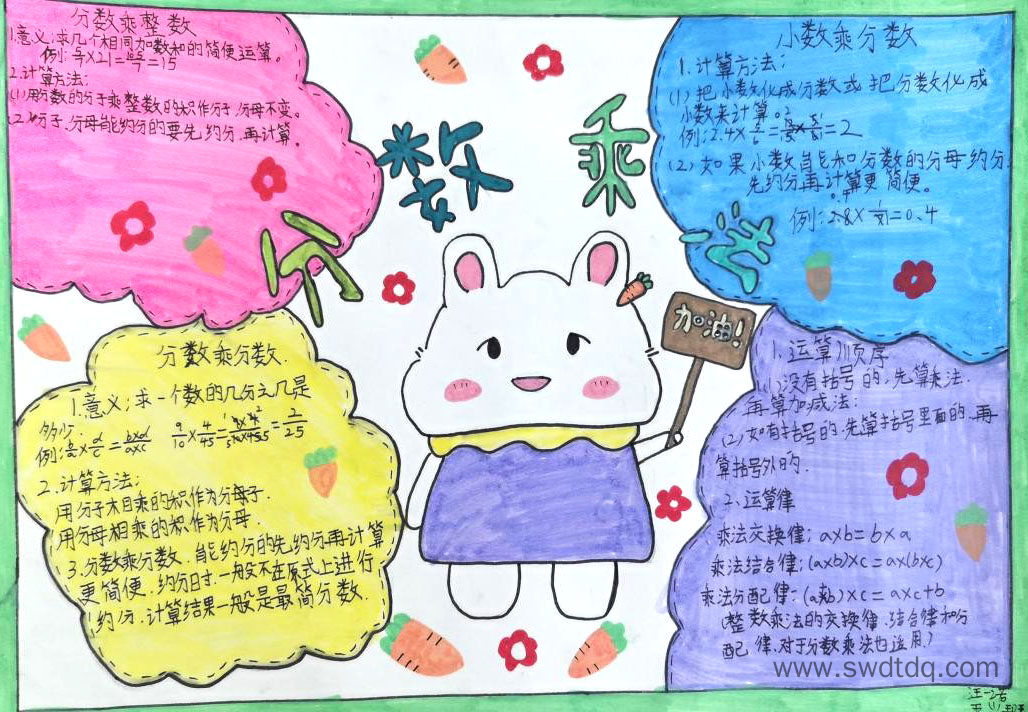 分数乘整数
1.意义:求几个相同加数和的简便运算。
2.计算方法:
(1)用分数的分子乘整数的积作分子,分母不变。
(2)分子、分母能约分的要先约分,再计算。
分数乘法
小数乘分数
1.计算方法:
(1)把小数化成分数或把分数化成
小数来计算。
(2)如果小数能和分数的分母约分,
先约分再计算更简便。
加油!
分数乘分数.
1.意义:求一个数的几分之几是
多少.
2.计算方法:
用分子相乘的积作为分母子.
用分母相乘的积作为分母.
3.分数乘分数.能约分的先约分再计算
更简便.约分时.一般不在原式上进行
约分.计算结果一般是最简分数.
1.运算顺序
(1)没有括号的,先算乘法.
再算加减法;
(2)如有括号的.先算括号里面的.再
算括号外的.
2、运算律
乘法交换律:a×b=b×a
乘法结合律:(a×b)×c=a×(b×c)
乘法分配律:(a×b)×c=a×c+b
(整数乘法的交换律、结合律和分
配律、对于分数乘法也适用)
www.swdtdq.com